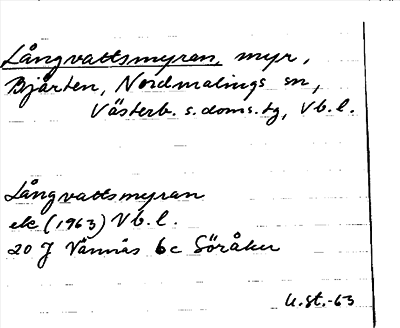 Långvattsmyran, myr,
Bjärten, Nordmalings sn,
Västerb. s. doms. tg, Vb. l.
Långvattsmyran
ek (1963) Vb. l.
20 J Vännäs 6c Söråker
U.st.-63